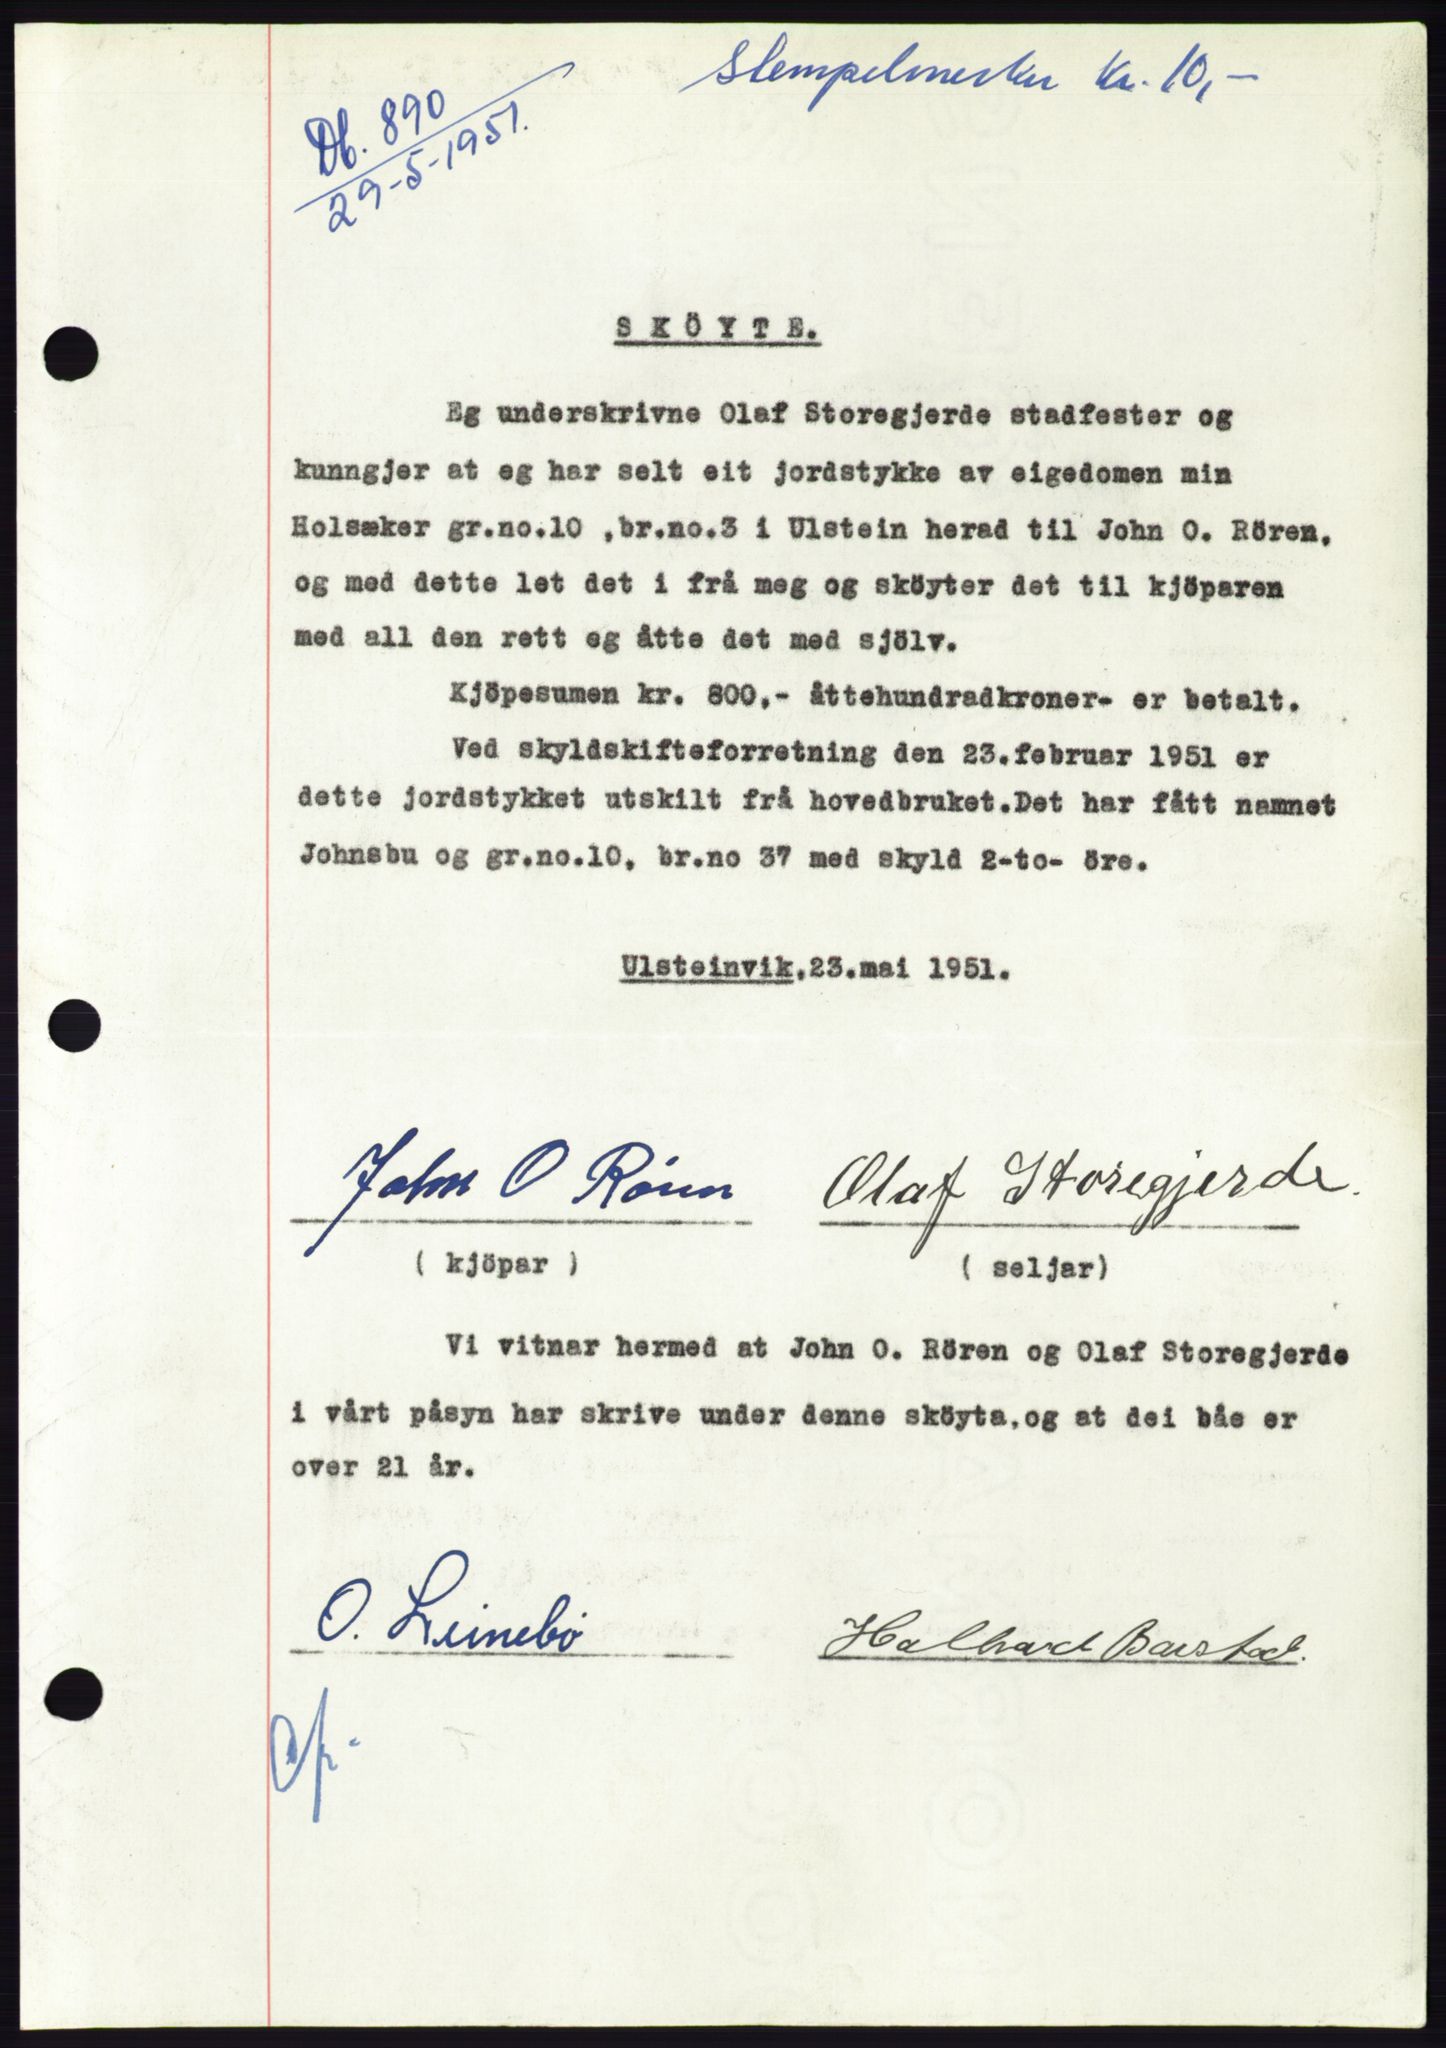 Stempelmerker kr. 10,-
Db. 890
29-5-1951.
S K Ö Y T E.
Eg underskrivne Olaf Storegjerde stadfester og
kunngjer at eg har selt eit jordstykke av eigedomen min
Holsæker gr.no.10 ,br.no.3 i Ulstein herad til John O. Rören,
og med dette let det i frå meg og sköyter det til kjöparen
med all den rett eg åtte det med sjölv.
Kjöpesumen kr. 800,- åttehundradkroner- er betalt.
Ved skyldskifteforretning den 23.februar 1951 er
dette jordstykket utskilt frå hovedbruket.Det har fått namnet
Johnsbu og gr.no.10, br.no 37 med skyld 2-to- öre.
Ulsteinvik,23.mai 1951.
John O Røren Olaf Storegjerde.
( kjöpar ) ( seljar)
Vi vitnar hermed at John O. Rören og Olaf Storegjerde
i vårt påsyn har skrive under denne sköyta,og at dei båe er
over 21 år.
O. Leinebø Halhard Barstad.